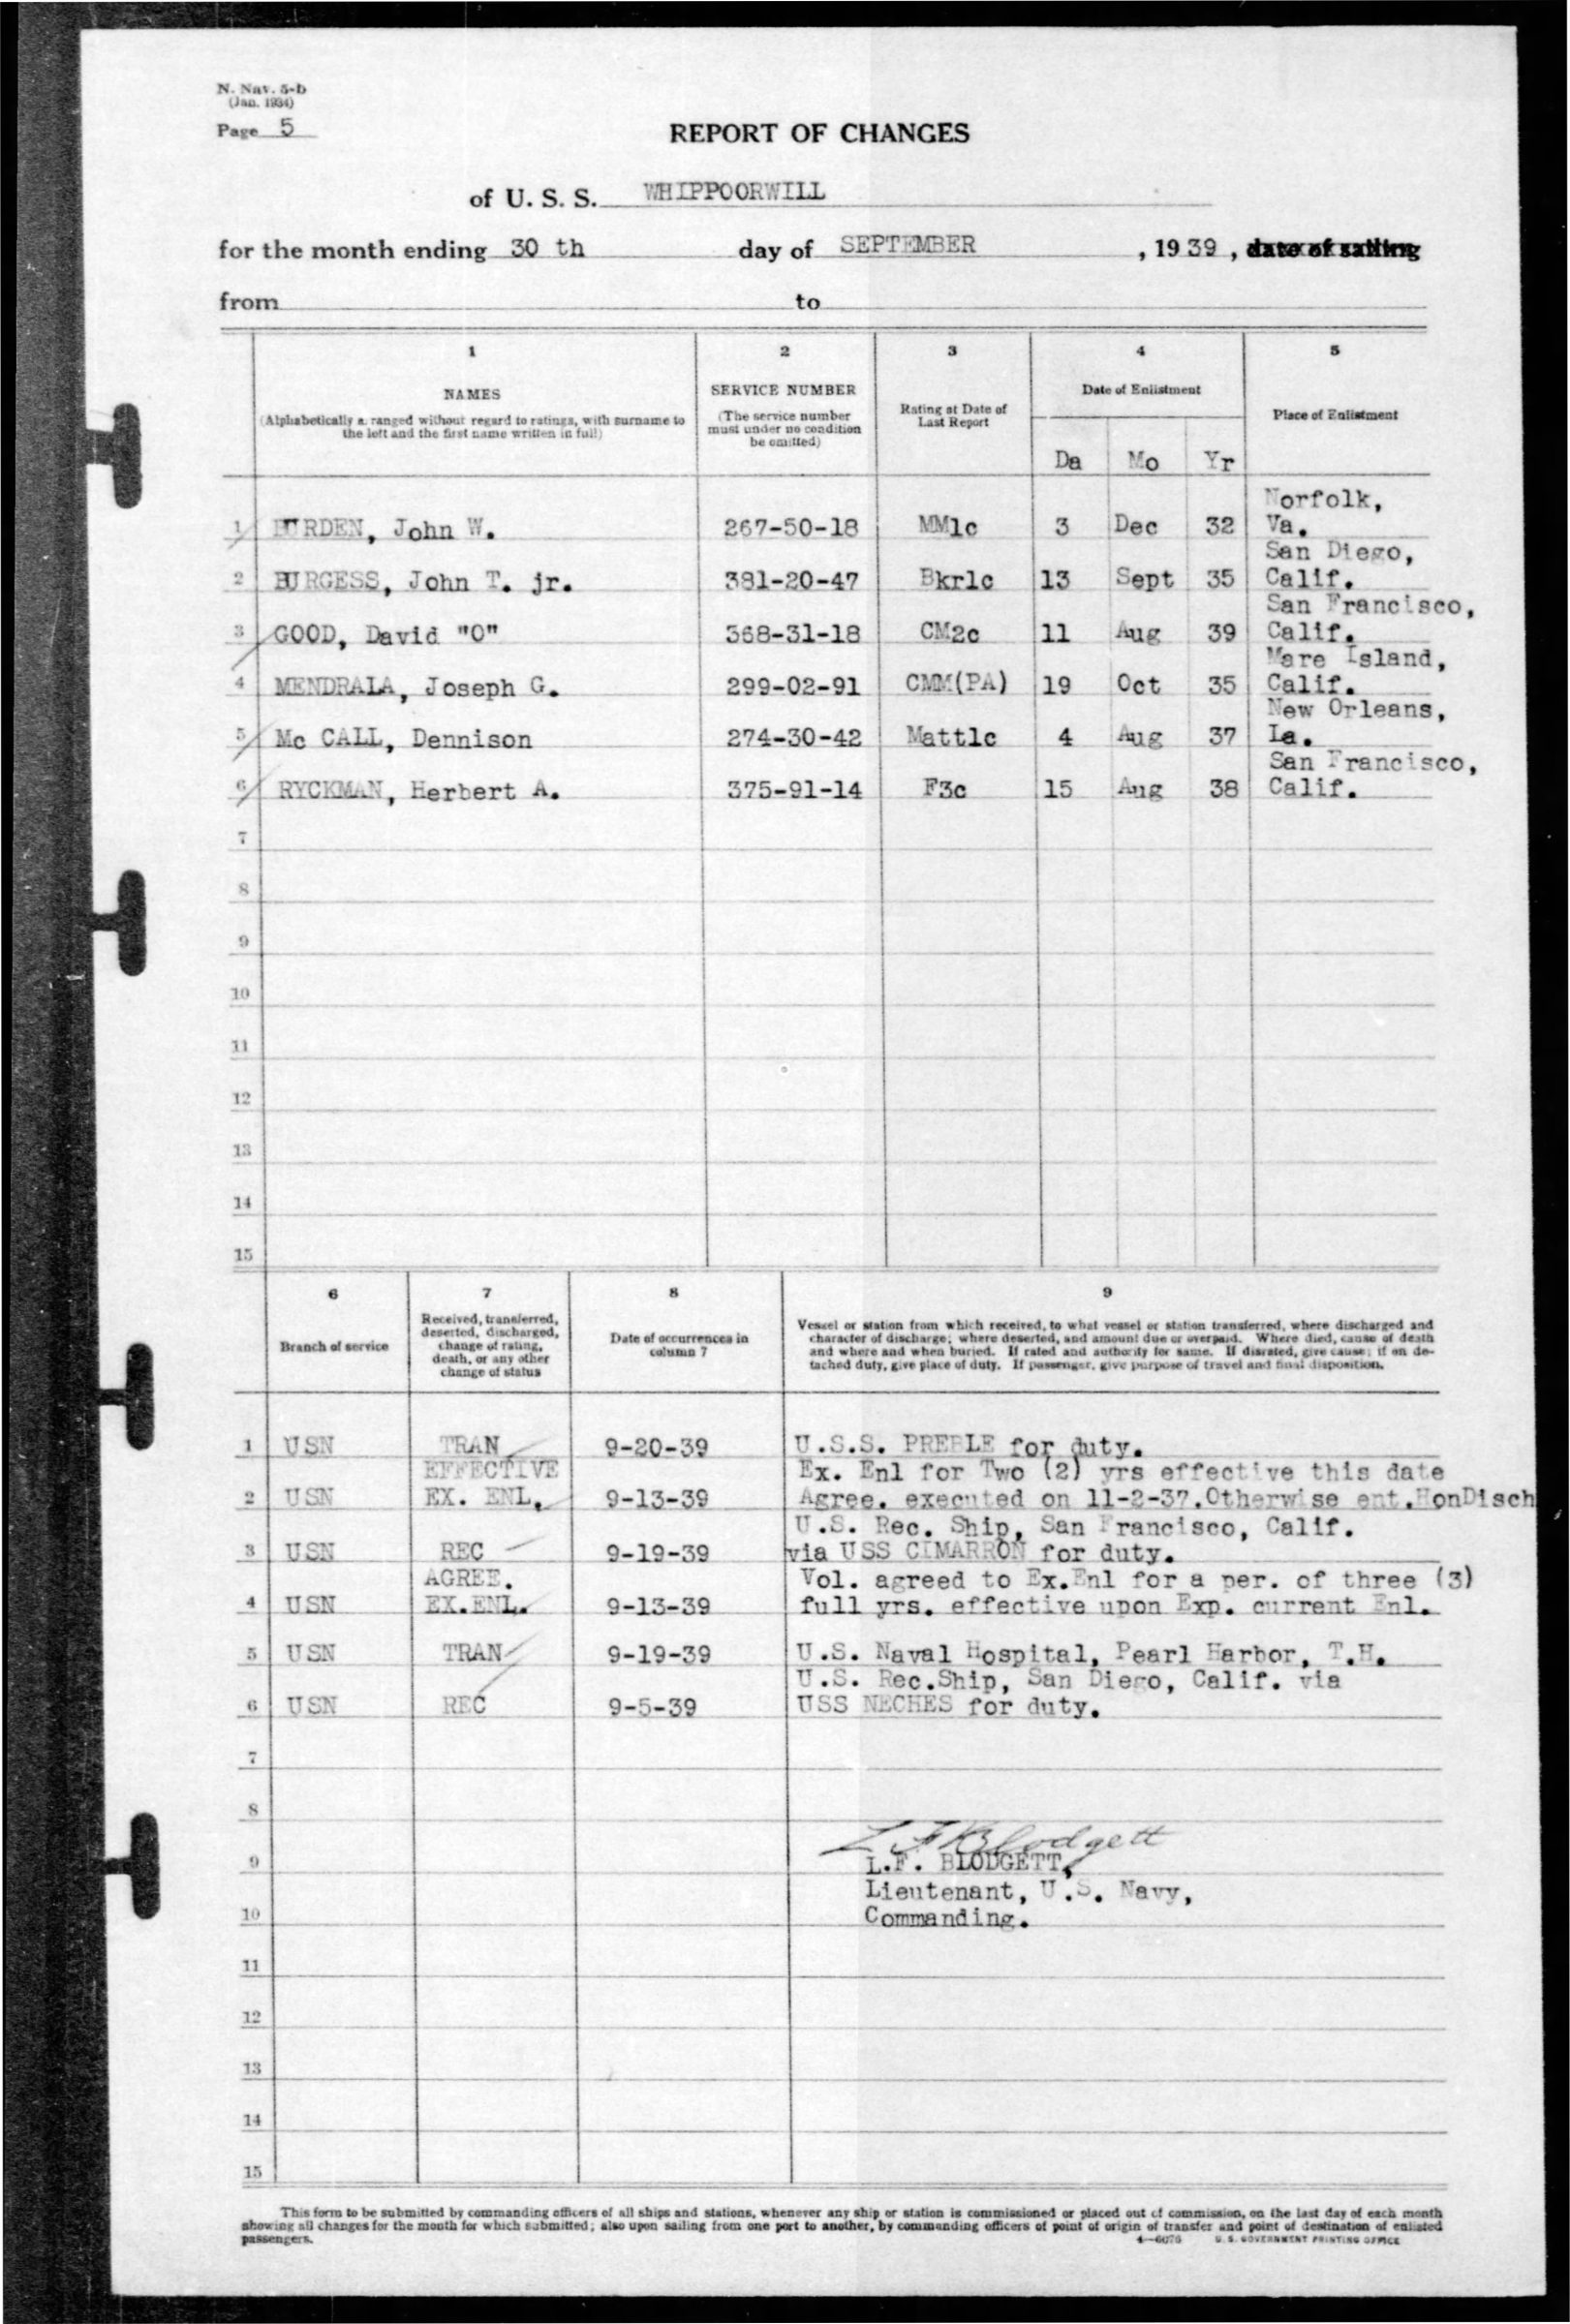 N. Nav. 5-b
(Jan. 1934)
Page 5
REPORT OF CHANGES
of U. S. S. WHIPPOORWILL
for the month ending 30 th day of SEPTEMBER , 19 39 , date of sailing
from to
1 2 3 4 5
NAMES
(Alphabetically arranged without regard to ratings, with surname to
the left and the first name written in full)
SERVICE NUMBER
(The service number
must under no condition
be omitted)
Rating at Date of
Last Report
Date of Enlistment
Da Mo Yr
Place of Enlistment
Norfolk,
1 BURDEN, John W. 267-50-18 MM1c 3 Dec 32 Va.
San Diego,
2 BURGESS, John T. jr. 381-20-47 Bkr1c 13 Sept 35 Calif.
San Francisco,
3 GOOD, David "O" 368-31-18 CM2c 11 Aug 39 Calif.
Mare Island,
4 MENDRALA, Joseph G. 299-02-91 CMM(PA) 19 Oct 35 Calif.
New Orleans,
5 Mc CALL, Dennison 274-30-42 Matt1c 4 Aug 37 La.
San Francisco,
6 RYCKMAN, Herbert A. 375-91-14 F3c 15 Aug 38 Calif.
7
8
9
10
11
12
13
14
15
6 7 8 9
Branch of service
Received, transferred,
deserted, discharged,
change of rating,
death, or any other
change of status
Date of occurrences in
column 7
Vessel or station from which received, to what vessel or station transferred, where discharged and
character of discharge; where deserted, and amount due or overpaid. Where died, cause of death
and where and when buried. If rated and authority for same. If disrated, give cause; if on de-
tached duty, give place of duty. If passenger, give purpose of travel and final disposition.
1 USN TRAN 9-20-39 U.S.S. PREBLE for duty.
EFFECTIVE Ex. Enl for Two (2) yrs effective this date
2 USN EX. ENL. 9-13-39 Agree. executed on 11-2-37.Otherwise ent.HonDisch
U.S. Rec. Ship, San Francisco, Calif.
3 USN REC 9-19-39 via USS CIMARRON for duty.
AGREE. Vol. agreed to Ex.Enl for a per. of three (3)
4 USN EX.ENL. 9-13-39 full yrs. effective upon Exp. current Enl.
5 USN TRAN 9-19-39 U.S. Naval Hospital, Pearl Harbor, T.H.
U.S. Rec.Ship, San Diego, Calif. via
6 USN REC 9-5-39 USS NECHES for duty.
7
8
L F Blodgett
9 L.F. BLODGETT,
Lieutenant, U.S. Navy,
10 Commanding.
11
12
13
14
15
This form to be submitted by commanding officers of all ships and stations, whenever any ship or station is commissioned or placed out of commission, on the last day of each month
showing all changes for the month for which submitted; also upon sailing from one port to another, by commanding officers of point of origin of transfer and point of destination of enlisted
passengers. 4—6076 U. S. GOVERNMENT PRINTING OFFICE